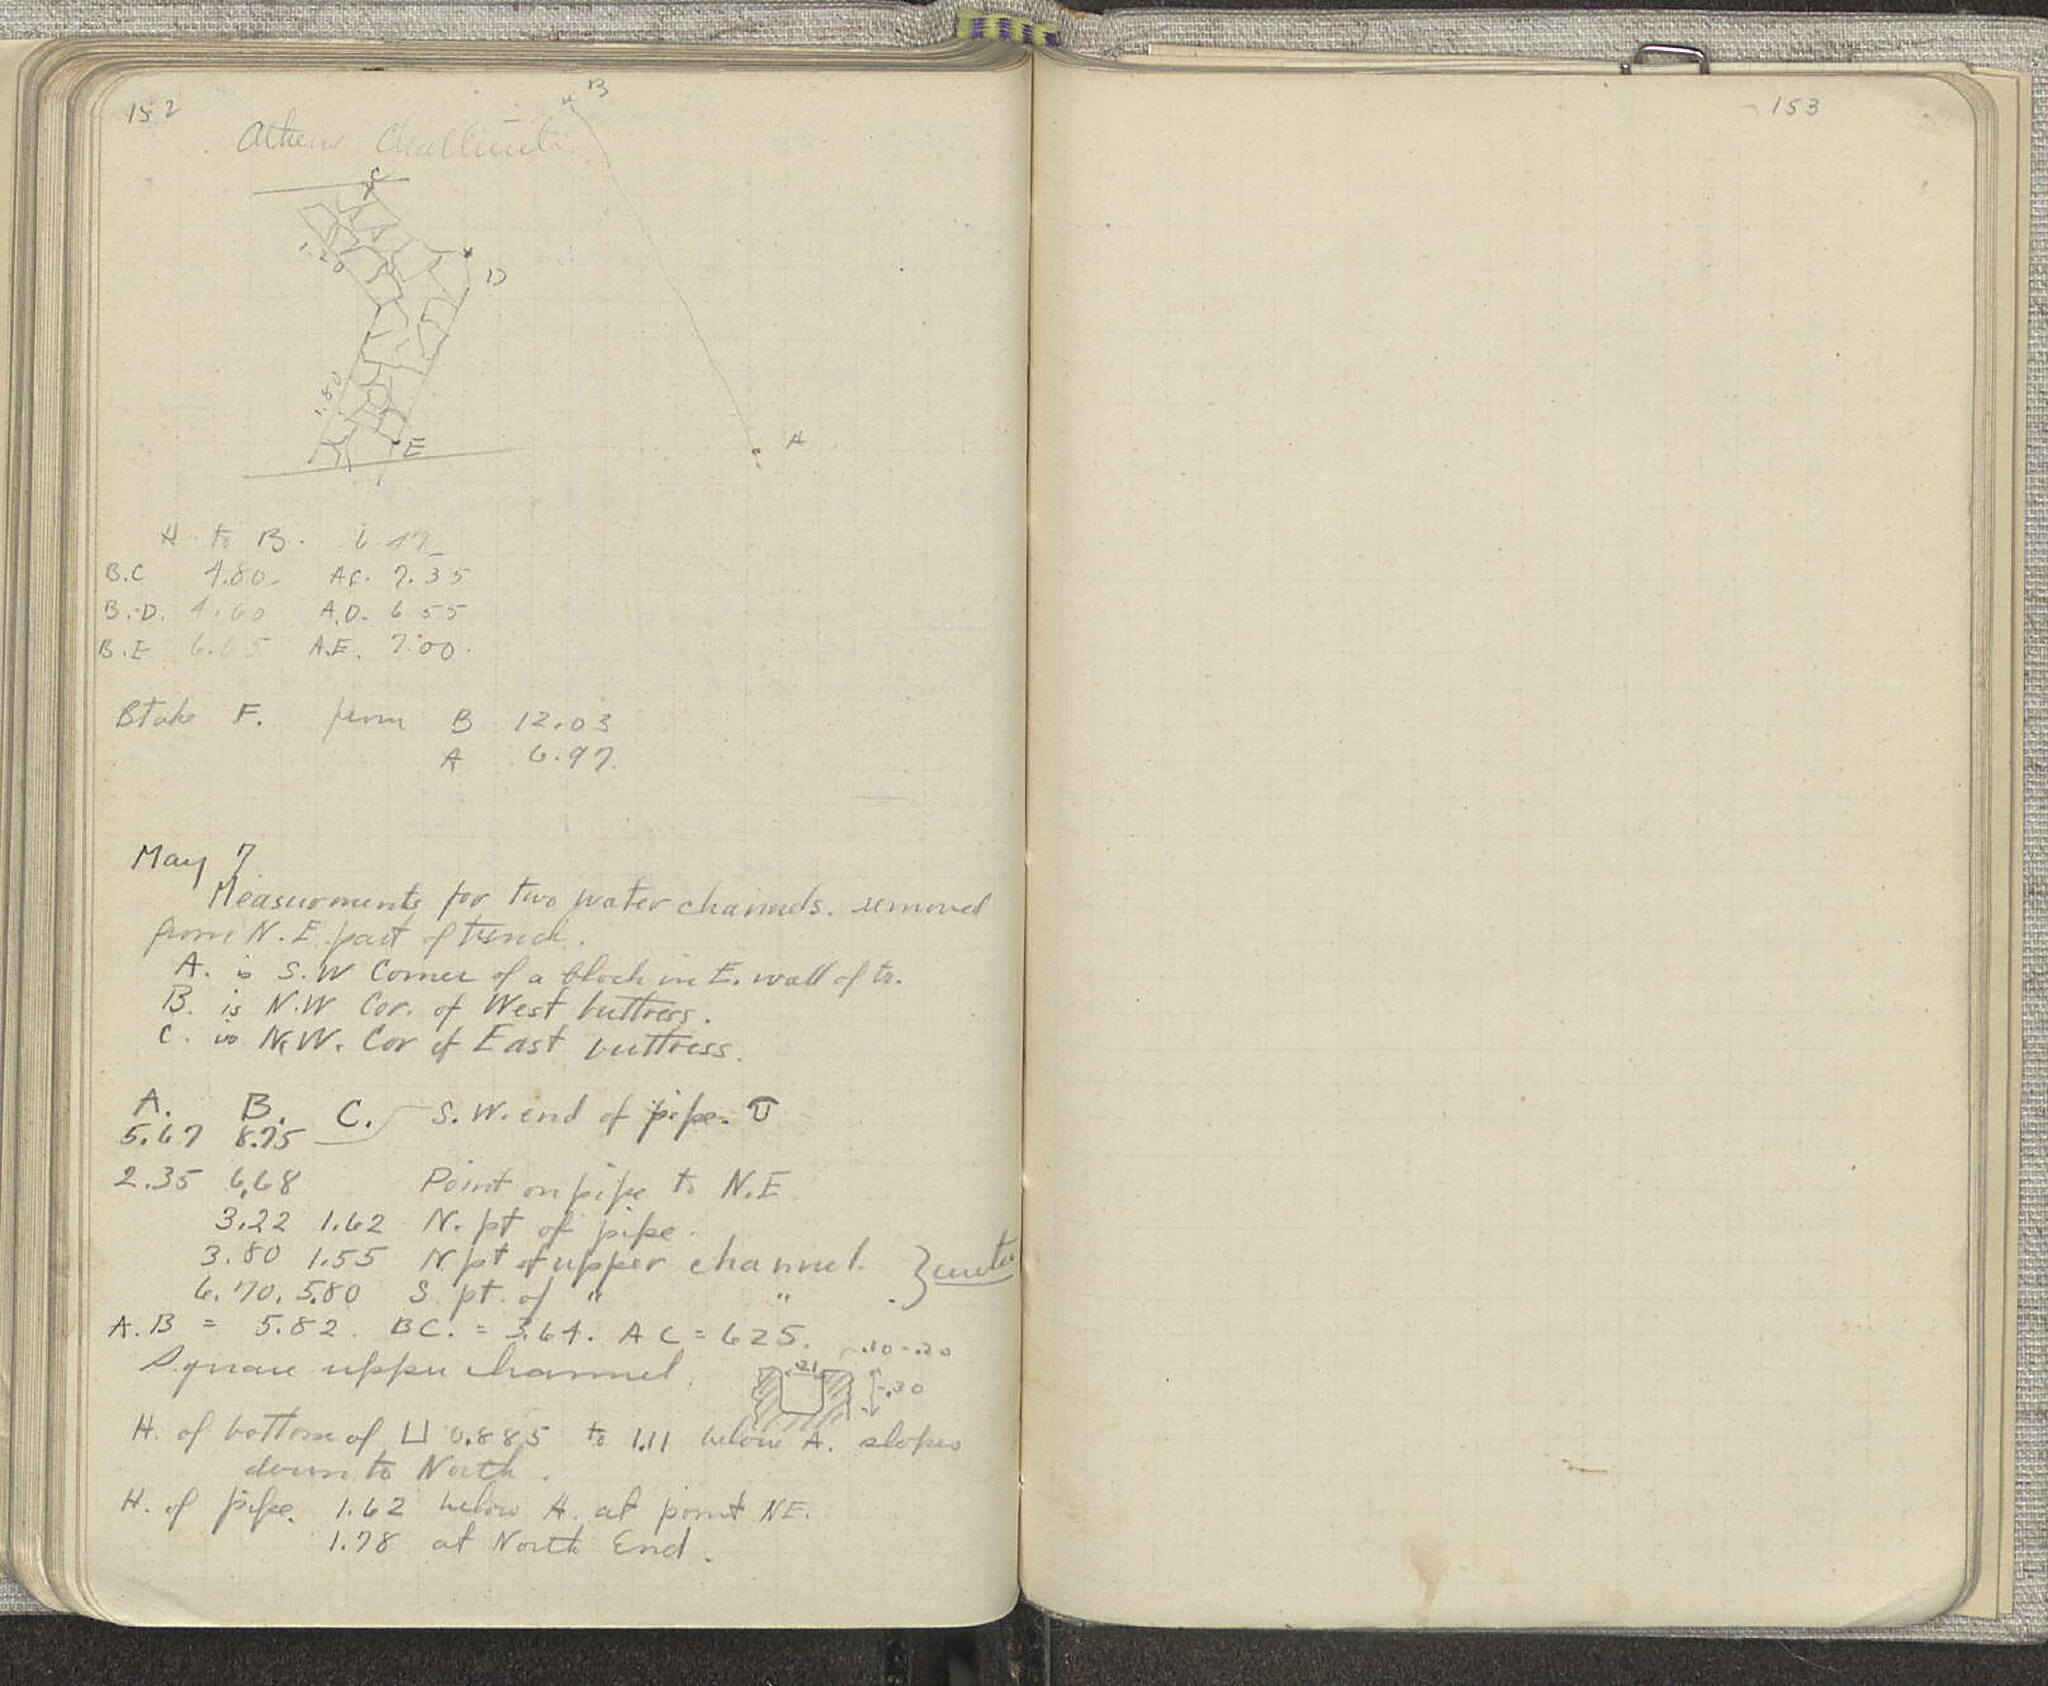 152
B
C
1.20
D
1.80
E
A
A to B.
B.C 4.80. AC. 7.35
B.D. 4.60 A.D. 6 55
B.E 6.65 A.E. 7.00.
Stake F. from B 12.03
A 6.97.
May 7
Measurments for two water channels. removed
from N.E. part of trench.
A. is S.W Corner of a block in E. wall of tr.
B. is N.W Cor. of West buttress.
C. is N.W. Cor of East buttress.
A. B. C. S.W. end of pipe.
5.67 8.75
2.35 6.68 Point on pipe to N.E
3.22 1.62 N. pt of pipe.
3.80 1.55 N pt of upper channel.
6.70. 5.80 S. pt. of " "
A.B = 5.82. BC. = 3.64. AC = 625.
Square upper channel.
.10-.20
.21
.30
H. of bottom of ⊔ 0.885 to 1.11 below A. slopes
down to North.
H. of pipe. 1.62 below A. at point NE.
1.78 at North End.
153